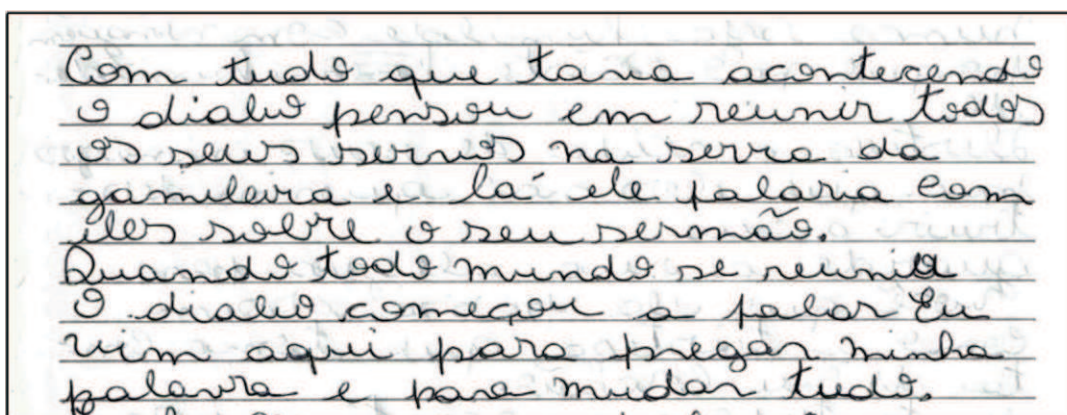 Com tudo que tava acontecendo
o diabo pensou em reunir todos
os seus servos na serra da
gamileira e lá ele falaria com
eles sobre o seu sermão.
Quando todo mundo se reuniu
o diabo começou a falar Eu
vim aqui para pregar minha
palavra e para mudar tudo.